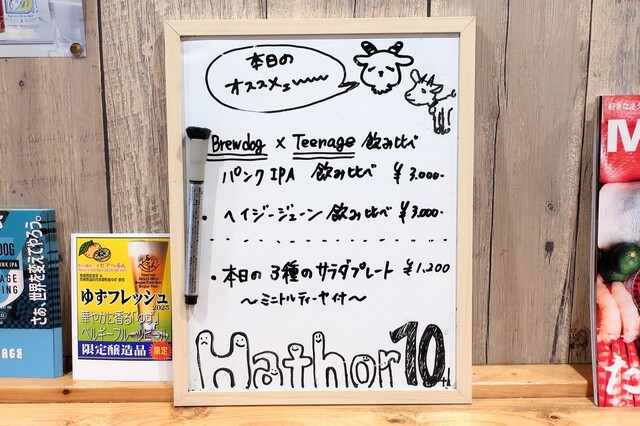 本日の
オススメュ
Brewdog × Teenage 飲み比べ
パンクIPA 飲み比べ ¥3.000-
・ヘイジージェーン飲み比べ ¥3.000-
・本日の3種のサラダプレート ¥1.200
〜ミニトルティーヤ付〜
Hathor 10
DOG
NK IPA
さあ、世界を変えてやろう。
ゆずフレッシュ
2025
華やかに香る「ゆず」
ベルギーフルーツビール
限定醸造品 限定
好きなよ
M
た